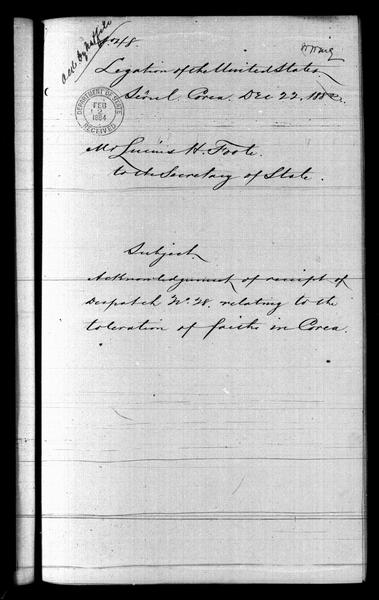 No. 48.
Legation of the United States
Séoul. Corea. Dec 22, 188
DEPARTMENT OF STATE
FEB
2
1884
RECEIVED
Mr Lucius H. Foote.
to the Secretary of State.
Subject
Acknowledgement of receipt of
Despatch No. 28. relating to the
toleration of faiths in Corea.